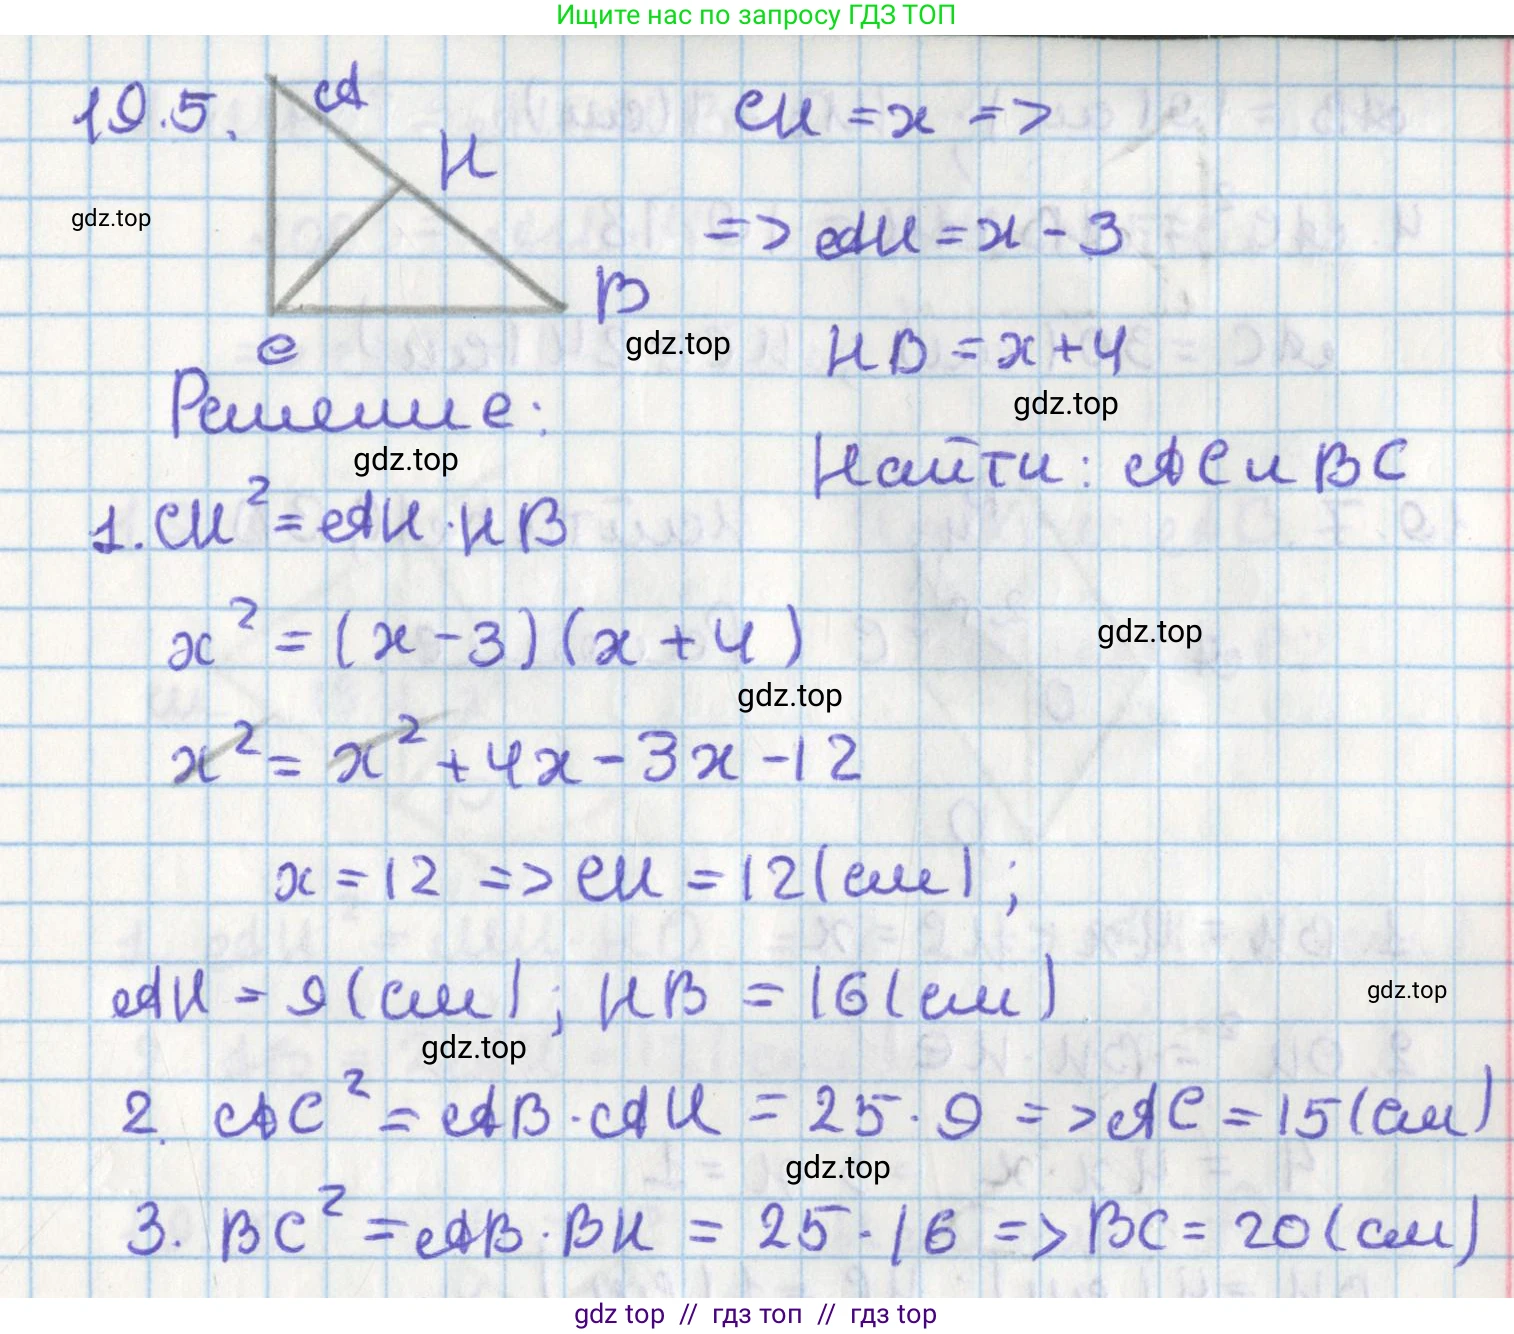 Ищите нас по запросу ГДЗ ТОП
19.5.
A
H
B
C
CH = x =>
=> AH = x - 3
HB = x + 4
Найти: AC и BC
gdz.top
gdz.top
gdz.top
Решение:
gdz.top
1. CH² = AH · HB
x² = (x - 3)(x + 4)
gdz.top
gdz.top
x² = x² + 4x - 3x - 12
x = 12 => CH = 12 (см);
AH = 9 (см); HB = 16 (см)
gdz.top
gdz.top
2. AC² = AB · AH = 25 · 9 => AC = 15 (см)
gdz.top
3. BC² = AB · BH = 25 · 16 => BC = 20 (см)
gdz top // гдз топ // гдз top